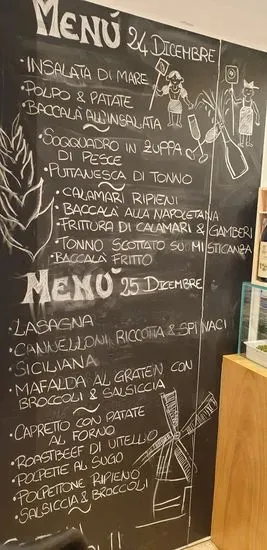 MENÚ 24 DICEMBRE
• INSALATA DI MARE
• POLPO & PATATE
• BACCALÀ ALL'INSALATA
~
• SOQQUADRO IN ZUPPA
DI PESCE
• PUTTANESCA DI TONNO
~
• CALAMARI RIPIENI
• BACCALÀ ALLA NAPOLETANA
• FRITTURA DI CALAMARI & GAMBERI
• TONNO SCOTTATO SU MISTICANZA
• BACCALÀ FRITTO
MENÚ 25 DICEMBRE
• LASAGNA
• CANNELLONI RICOTTA & SPINACI
• SICILIANA
• MAFALDA AL GRATEN CON
BROCCOLI & SALSICCIA
~
• CAPRETTO CON PATATE
AL FORNO
• ROASTBEEF DI VITELLO
• POLPETTE AL SUGO
• POLPETTONE RIPIENO
• SALSICCIA & BROCCOLI